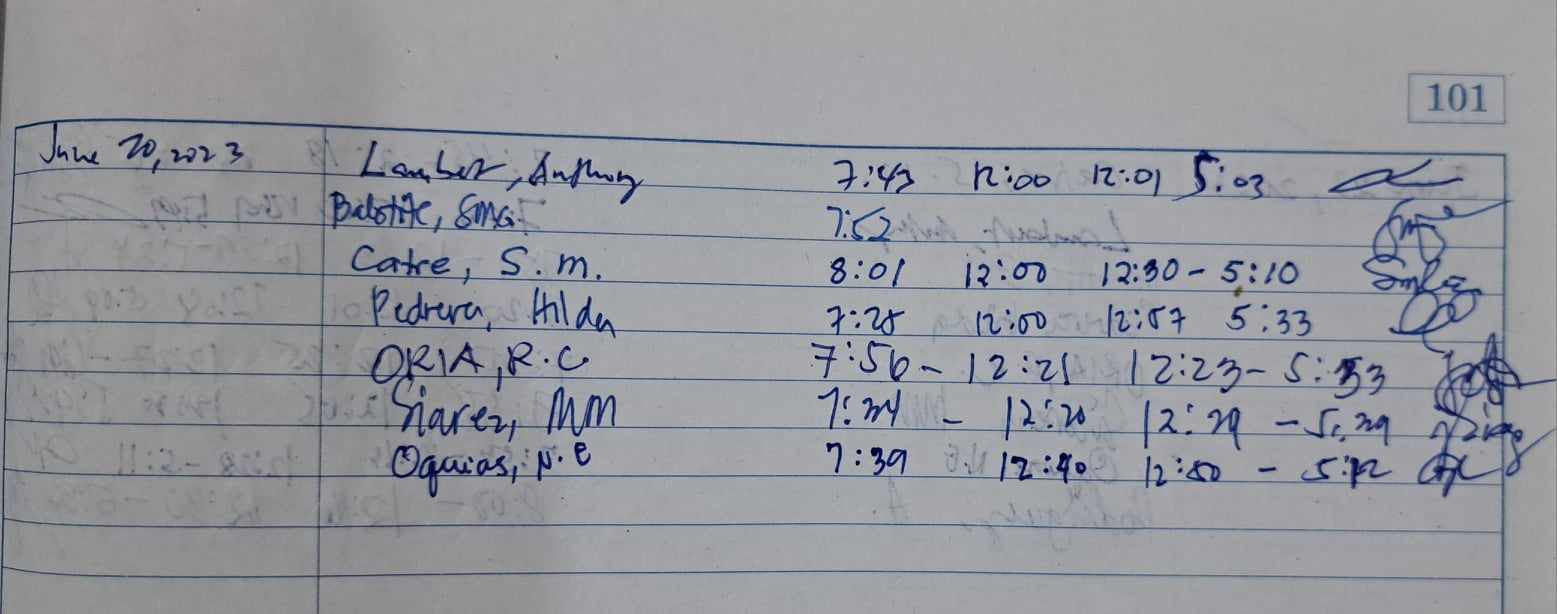 101
June 20, 2023 Lambet, Anthony 7:43 12:00 12:01 5:03
SMG. 7:52
Catre, S. m. 8:01 12:00 12:30 - 5:10
Pedrera, Hilda 7:28 12:00 12:57 5:33
ORIA, R. C 7:56 - 12:21 12:23 - 5:33
Siarez, MM 7:34 - 12:20 12:29 - 5:39
Oquias, N. E 7:39 12:40 12:50 - 5:42